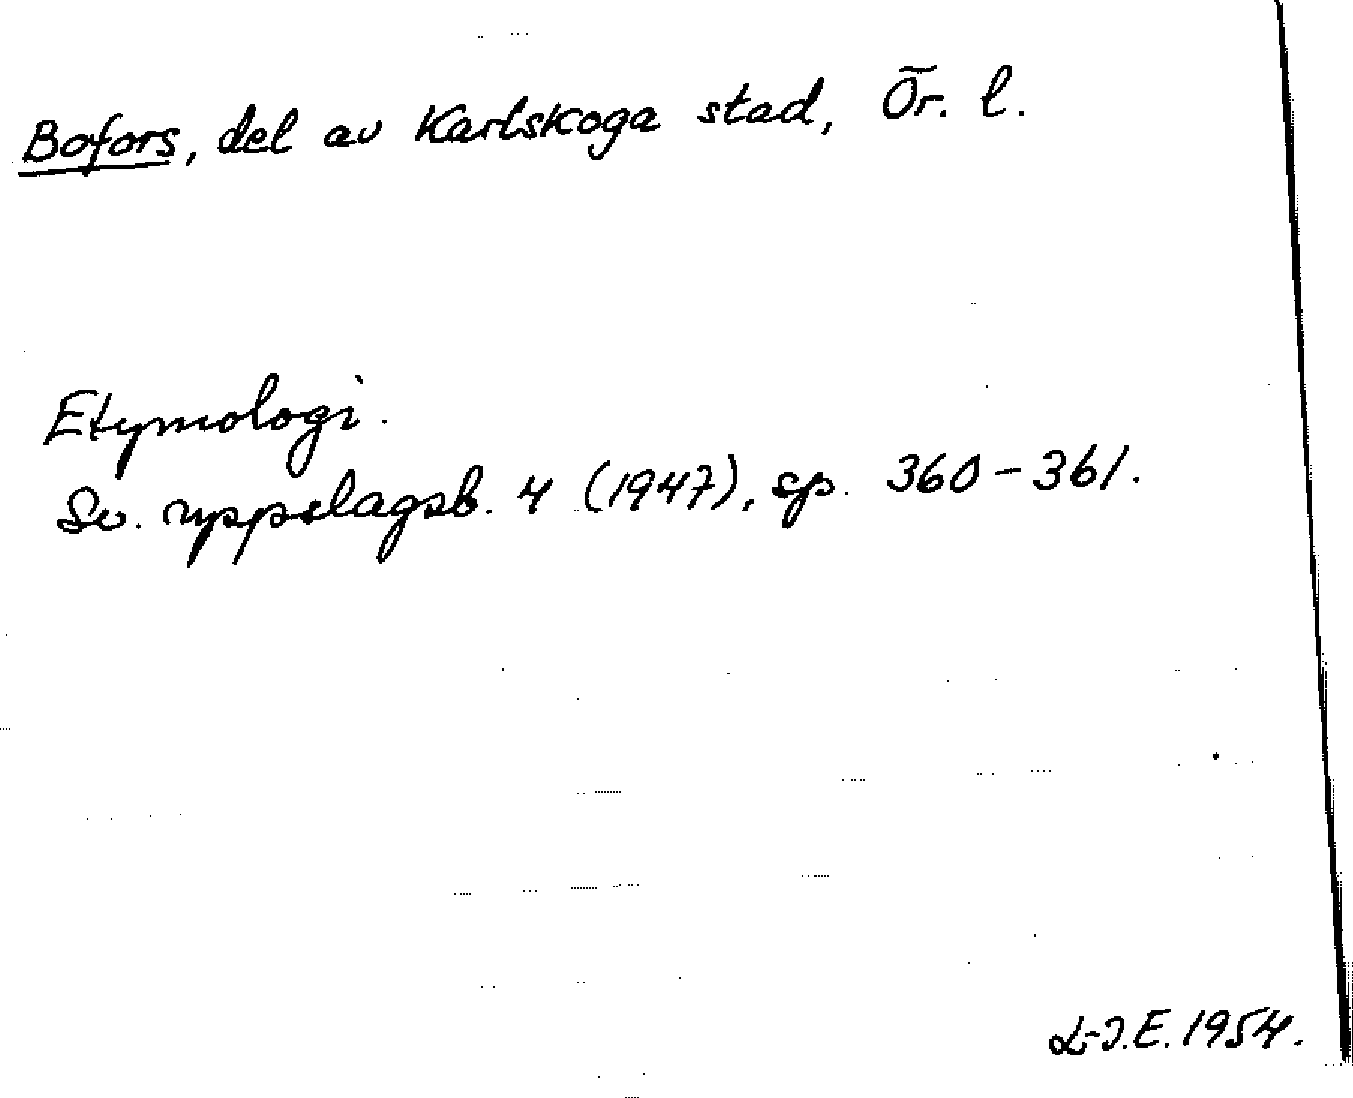 Bofors, del av Karlskoga stad, Ör. l.
Etymologi.
Sv. uppslagsb. 4 (1947), sp. 360-361.
L-I.E. 1954.